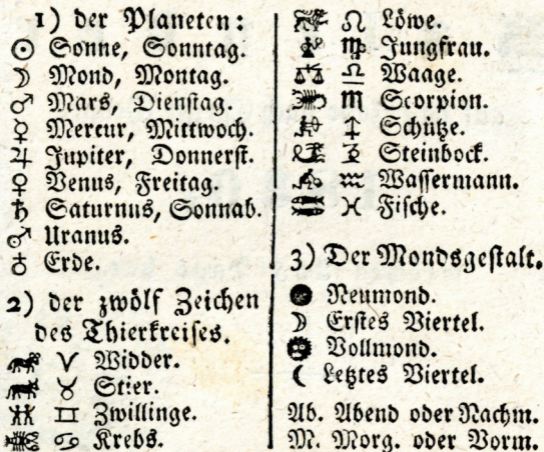 1) der Planeten:
☉ Sonne, Sonntag.
☽ Mond, Montag.
♂ Mars, Dienſtag.
☿ Mercur, Mittwoch.
♃ Jupiter, Donnerſt.
♀ Venus, Freitag.
♄ Saturnus, Sonnab.
⛢ Uranus.
♁ Erde.
2) der zwölf Zeichen
des Thierkreiſes.
♈ Widder.
♉ Stier.
♊ Zwillinge.
♋ Krebs.
♌ Löwe.
♍ Jungfrau.
♎ Waage.
♏ Scorpion.
♐ Schütze.
♑ Steinbock.
♒ Waſſermann.
♓ Fiſche.
3) Der Mondsgeſtalt.
● Neumond.
☽ Erſtes Viertel.
Vollmond.
☾ Letztes Viertel.
Ab. Abend oder Nachm.
M. Morg. oder Vorm.